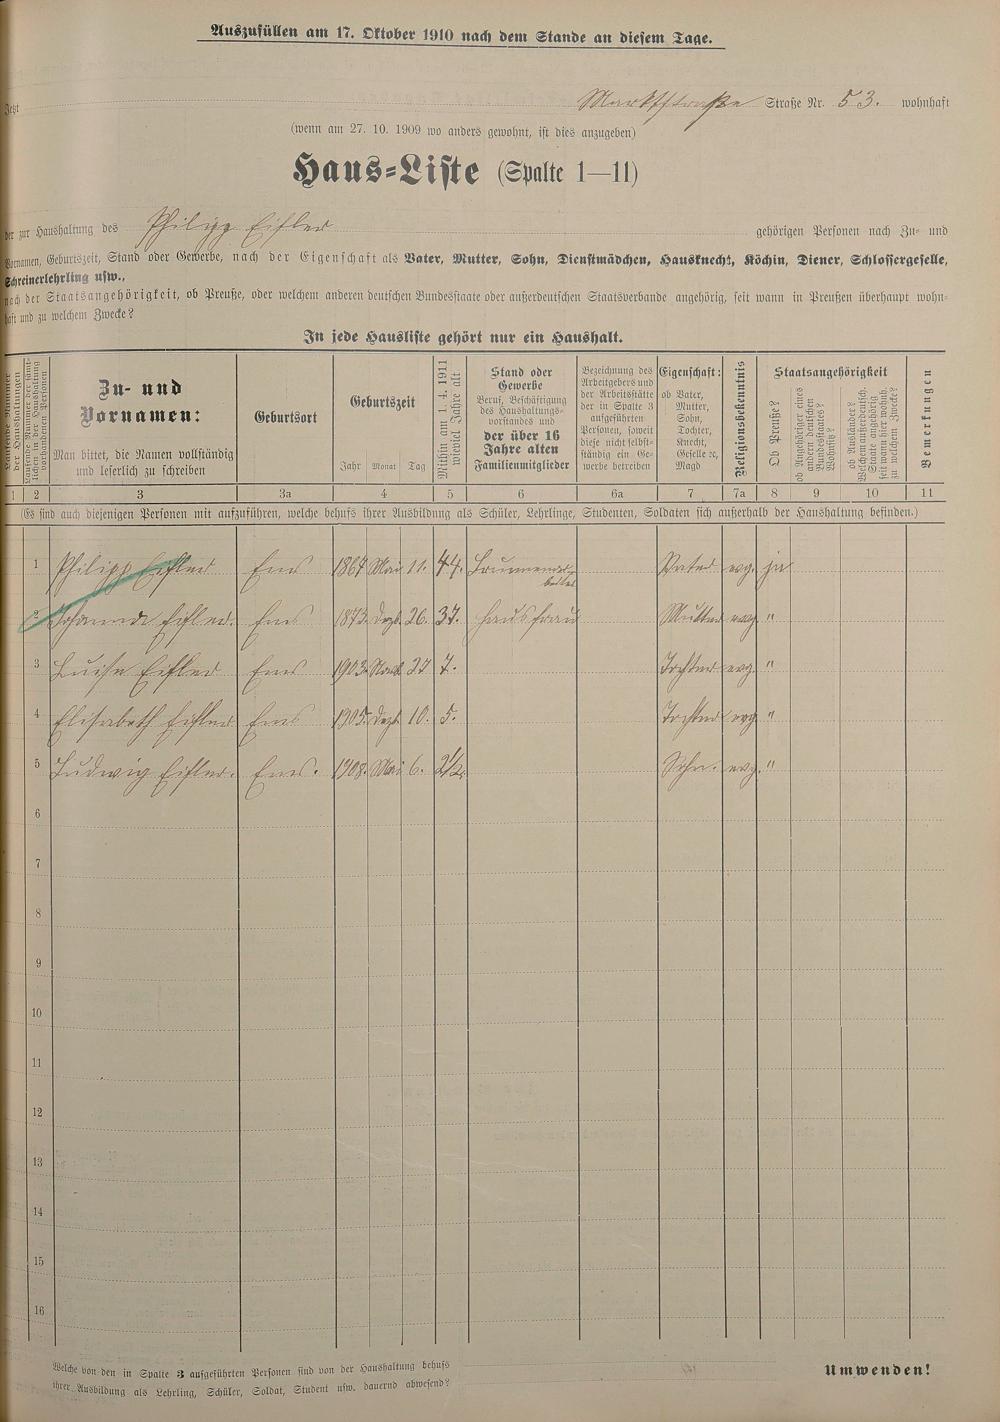 Auszufüllen am 17. Oktober 1910 nach dem Stande an diesem Tage.
Jetzt Marktstraße Straße Nr. 53. wohnhaft
(wenn am 27. 10. 1909 wo anders gewohnt, ist dies anzugeben)
Haus-Liste (Spalte 1—11)
der zur Haushaltung des Philipp Eifler gehörigen Personen nach Zu- und
Vornamen, Geburtszeit, Stand oder Gewerbe, nach der Eigenschaft als Vater, Mutter, Sohn, Dienstmädchen, Hausknecht, Köchin, Diener, Schlossergeselle,
Schreinerlehrling usw.,
nach der Staatsangehörigkeit, ob Preuße, oder welchem anderen deutschen Bundesstaate oder außerdeutschen Staatsverbande angehörig, seit wann in Preußen überhaupt wohn-
haft und zu welchem Zwecke?
In jede Hausliste gehört nur ein Haushalt.
Laufende Nummer der Haushaltungen
Laufende Nummer der sämt-
lichen in der Haushaltung
vorhandenen Personen
Zu- und
Vornamen:
Man bittet, die Namen vollständig
und leserlich zu schreiben
Geburtsort
Geburtszeit
Jahr Monat Tag
Mithin am 1. 4. 1911
wieviel Jahre alt
Stand oder
Gewerbe
Beruf, Beschäftigung
des Haushaltungs-
vorstandes und
der über 16
Jahre alten
Familienmitglieder
Bezeichnung des
Arbeitgebers und
der Arbeitsstätte
der in Spalte 3
aufgeführten
Personen, soweit
diese nicht selbst-
ständig ein Ge-
werbe betreiben
Eigenschaft:
ob Vater,
Mutter,
Sohn,
Tochter,
Knecht,
Geselle ꝛc,
Magd
Religionsbekenntnis
Staatsangehörigkeit
Ob Preuße?
ob Angehöriger eines
andern deutschen
Bundesstaates?
Wohnsitz?
ob Ausländer?
Welchem außerdeutsch.
Staate angehörig
seit wann hier wohnh.
zu welchem Zwecke?
Bemerkungen
1 2 3 3a 4 5 6 6a 7 7a 8 9 10 11
(Es sind auch diejenigen Personen mit aufzuführen, welche behufs ihrer Ausbildung als Schüler, Lehrlinge, Studenten, Soldaten sich außerhalb der Haushaltung befinden.)
1 Philipp Eifler Ems 1867 Mai 11. 44. Vater evg. ja
2 Johanna Eifler. Ems 1873. Dezb. 26. 37. Hausfrau Mutter evg. "
3 Luise Eifler Ems 1903. Novb. 27 7. Tochter evg. "
4 Elisabeth Eifler Ems 1905. Dezb. 10. 5. Tochter evg. "
5 Ludwig Eifler. Ems. 1908. Mai 6. 2½. Sohn. evg. "
6
7
8
9
10
11
12
13
14
15
16
Welche von den in Spalte 3 aufgeführten Personen sind von der Haushaltung behufs
ihrer Ausbildung als Lehrling, Schüler, Soldat, Student usw. dauernd abwesend?
Umwenden!